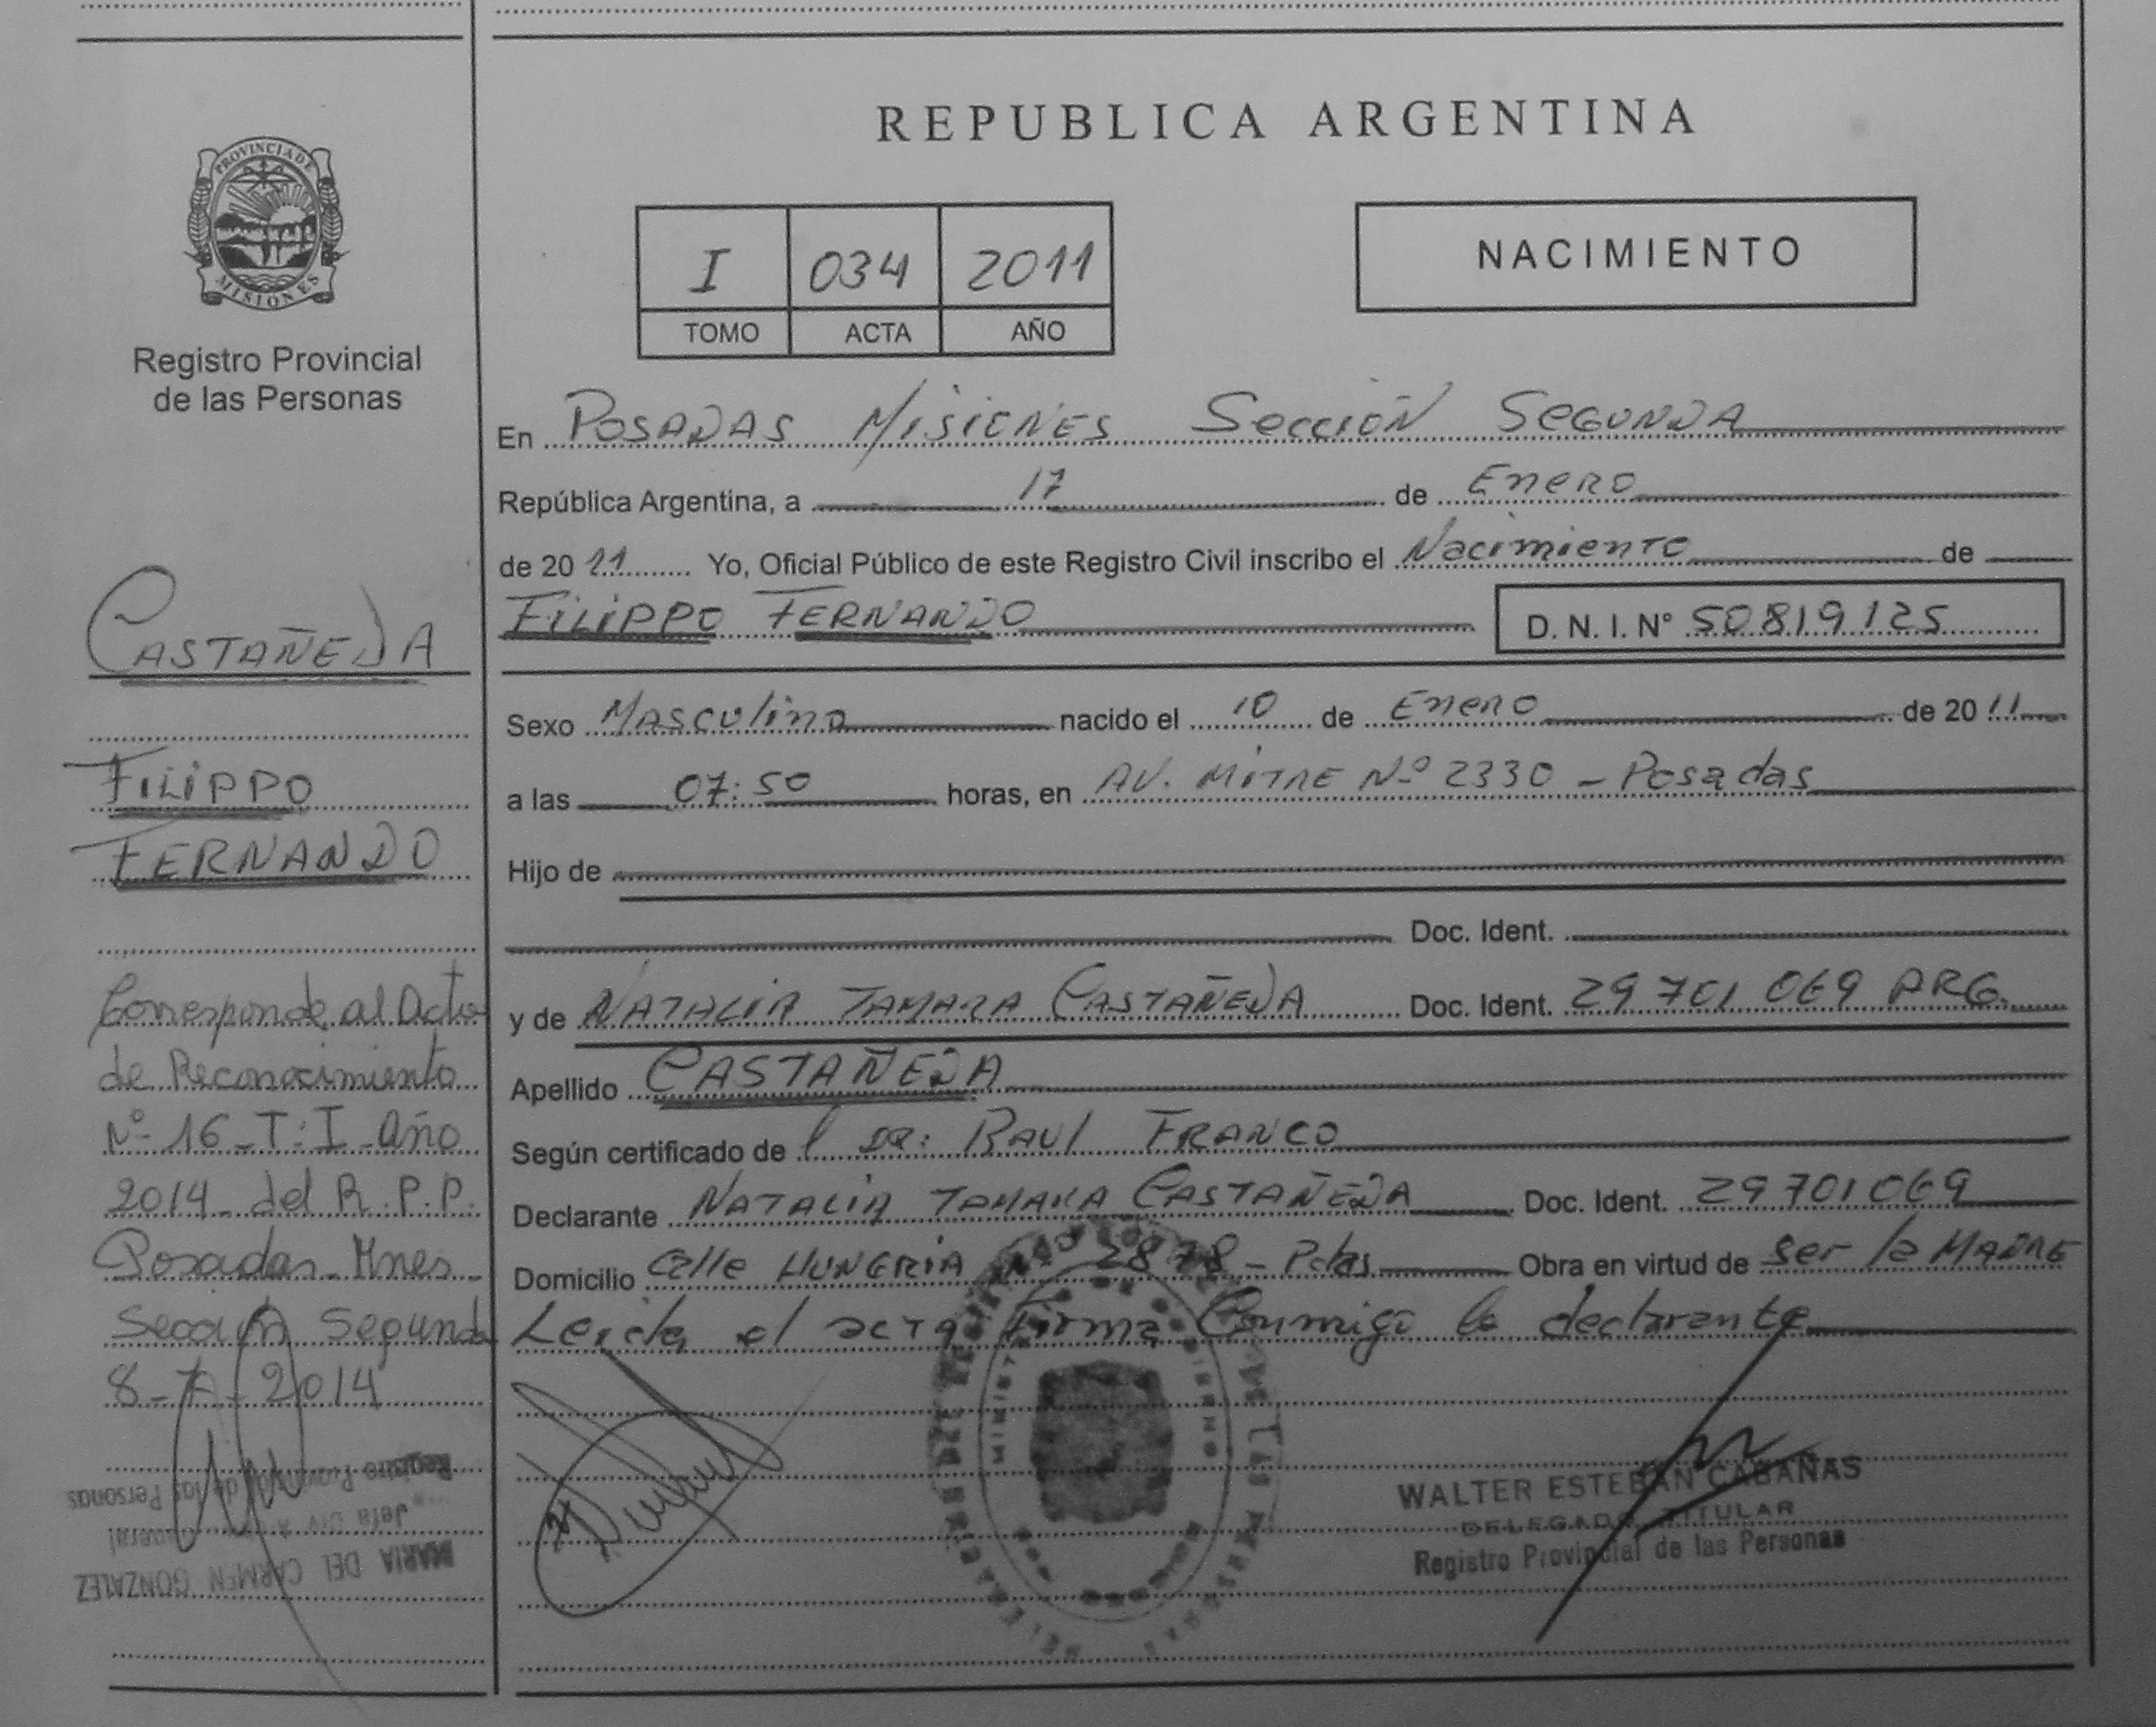 PROVINCIA DE
MISIONES
Registro Provincial
de las Personas
CASTAÑEDA
FILIPPO
FERNANDO
Corresponde al Acta
de Reconocimiento
Nº 16 - T: I - Año
2014 - del R.P.P.
Posadas - Mnes -
Sección Segunda
8-7-2014
Registro Provincial de las Personas
Jefa Div. General
MARIA DEL CARMEN GONZALEZ
REPUBLICA ARGENTINA
I 034 2011
TOMO ACTA AÑO
NACIMIENTO
En POSADAS MISIONES SECCIÓN SEGUNDA
República Argentina, a 17 de ENERO
de 2011 Yo, Oficial Público de este Registro Civil inscribo el Nacimiento de
FILIPPO FERNANDO D. N. I. Nº 50819125
Sexo MASCULINO nacido el 10 de ENERO de 2011
a las 07:50 horas, en AV. MITRE Nº 2330 - Posadas
Hijo de
Doc. Ident.
y de NATALIA TAMARA CASTAÑEDA Doc. Ident. 29701069 ARG.
Apellido CASTAÑEDA
Según certificado de l DR: RAUL FRANCO
Declarante NATALIA TAMARA CASTAÑEDA Doc. Ident. 29701069
Domicilio Calle HUNGRIA Nº 2878 - Pdas Obra en virtud de ser la MADRE
Leida el acta firma Conmigo la declarante
MINISTERIO GOBIERNO
DE LAS PERSONAS
WALTER ESTEBAN CABAÑAS
DELEGADO TITULAR
Registro Provincial de las Personas